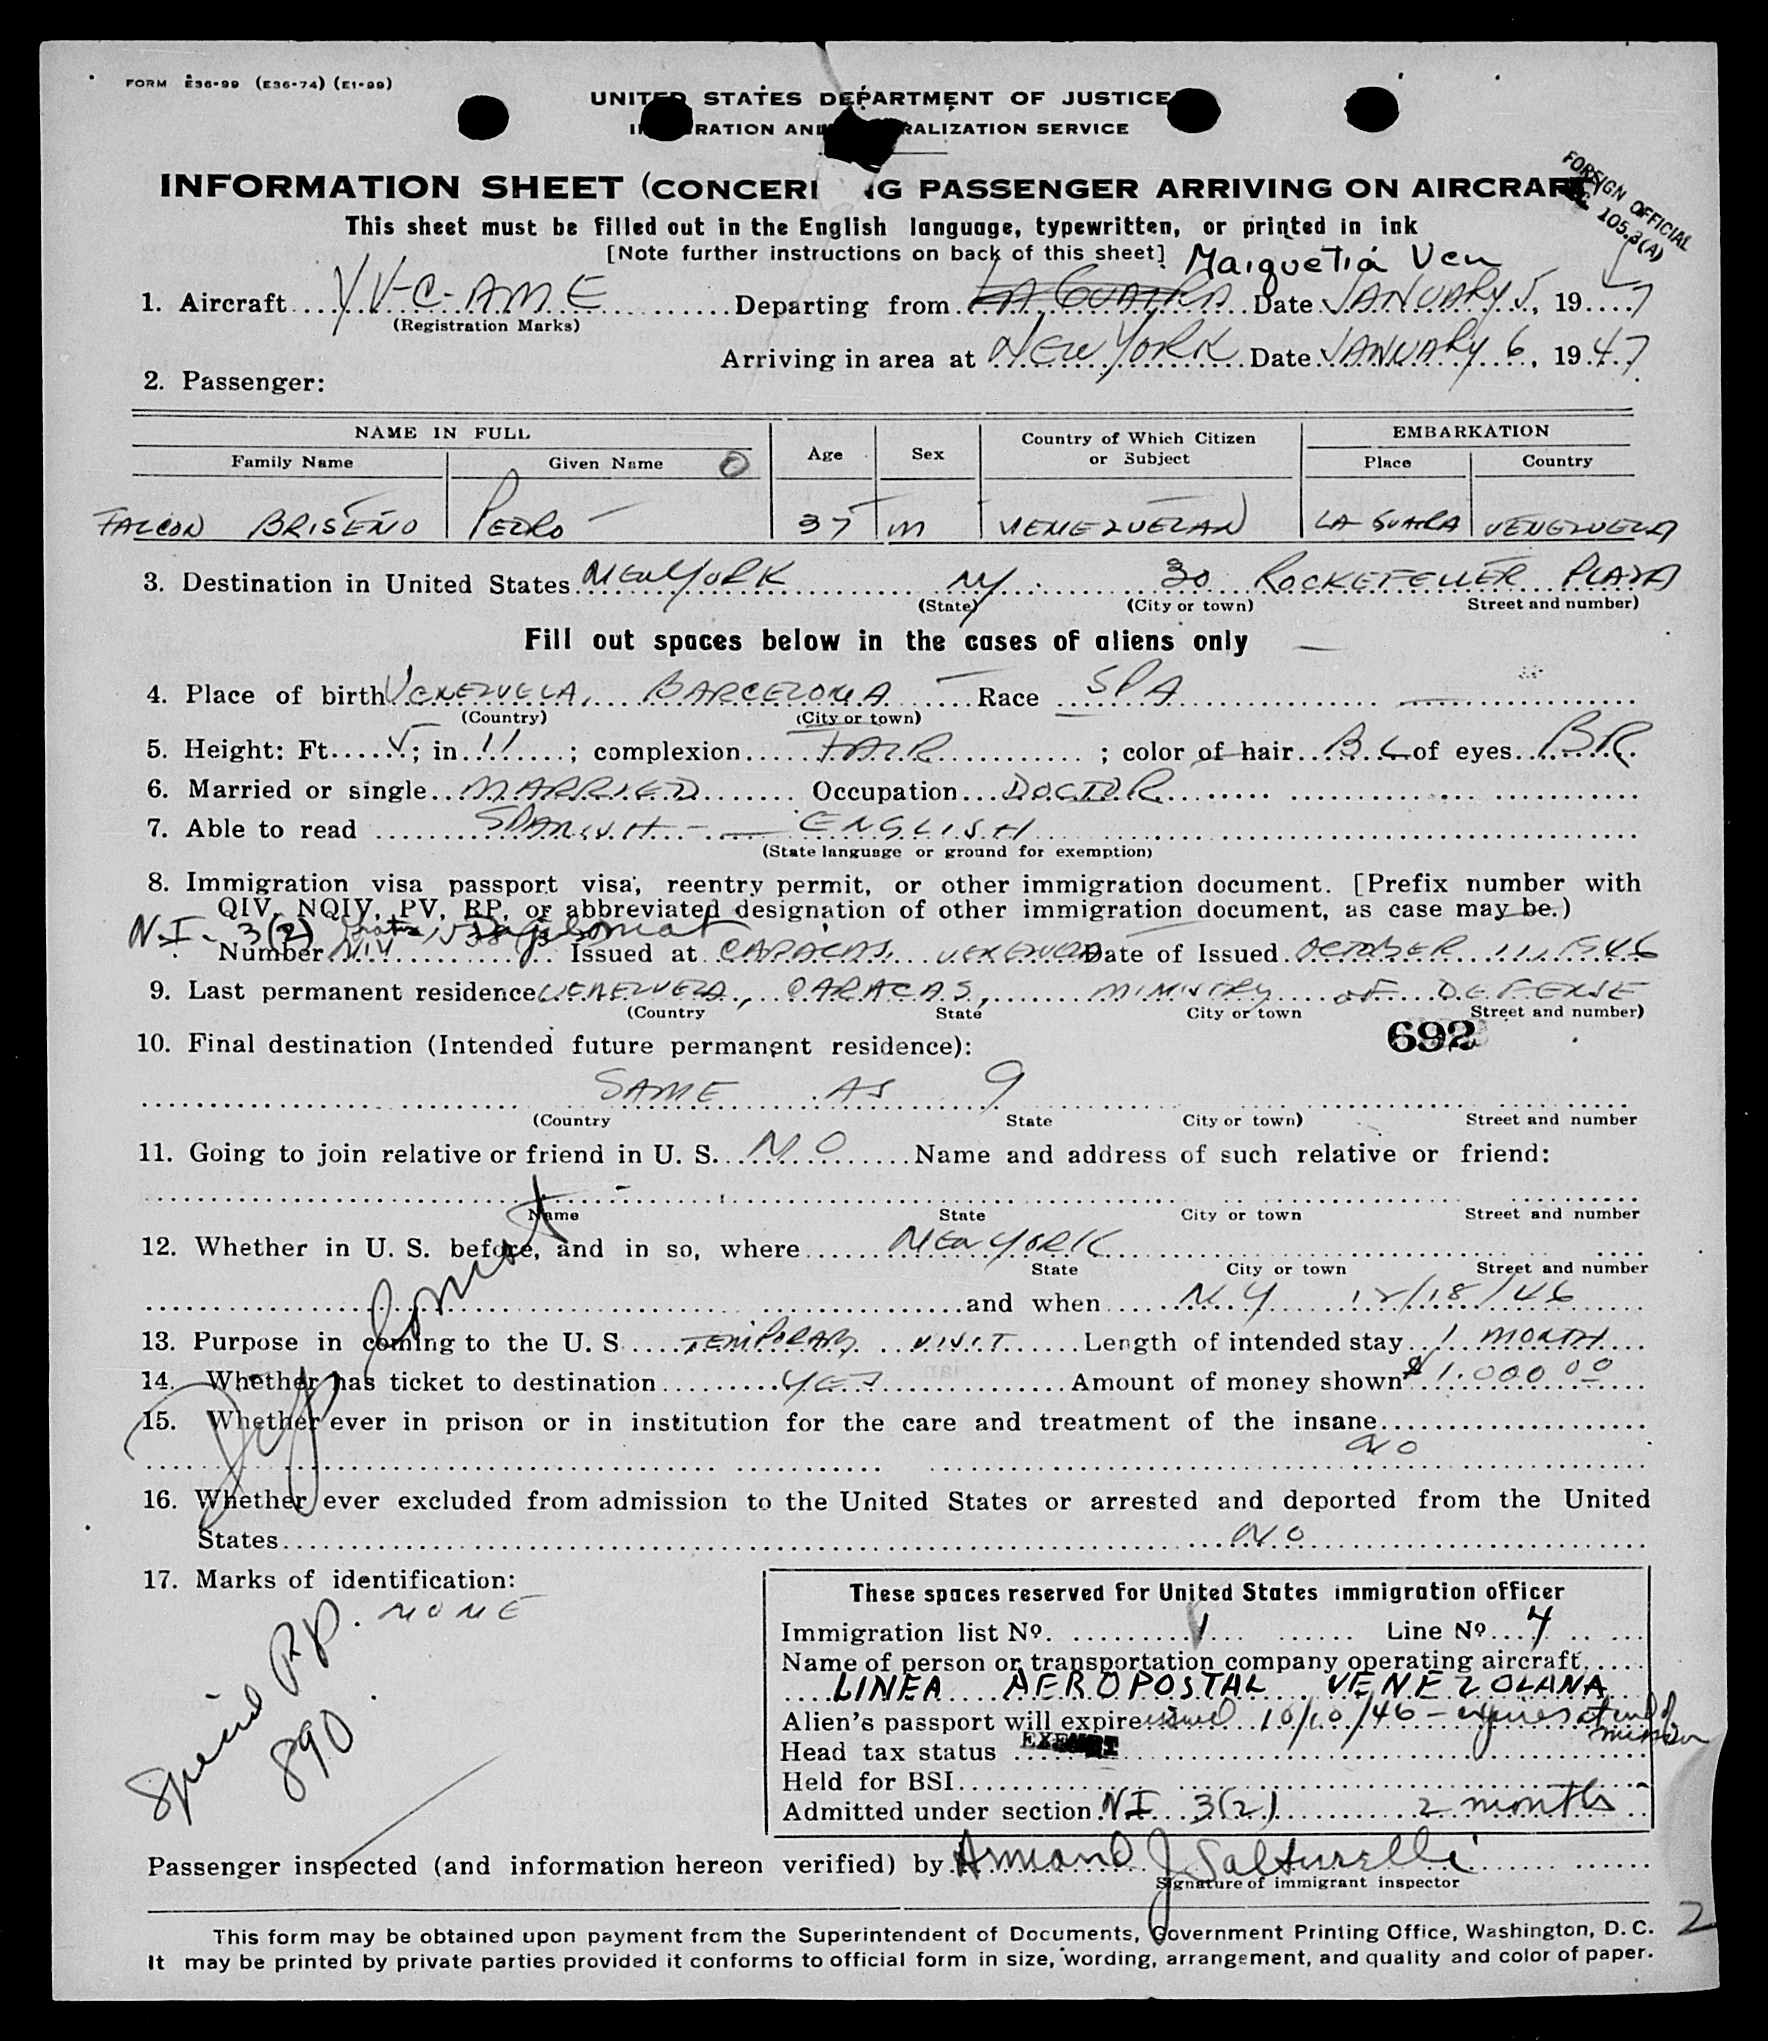 FORM E36-99 (E36-74) (E1-99)
UNITED STATES DEPARTMENT OF JUSTICE
RATION AND RALIZATION SERVICE
INFORMATION SHEET (CONCERNING PASSENGER ARRIVING ON AIRCRAFT
FOREIGN OFFICIAL
105.3(A)
This sheet must be filled out in the English language, typewritten, or printed in ink
[Note further instructions on back of this sheet]
Maiquetia Ven
1. Aircraft YV-C-AME Departing from LA GUAIRA Date JANUARY 5, 19 7
(Registration Marks)
Arriving in area at NEW YORK Date JANUARY 6, 1947
2. Passenger:
NAME IN FULL Age Sex Country of Which Citizen or Subject EMBARKATION
Family Name Given Name Place Country
FALCON BRISEÑO PEDRO 37 M VENEZUELAN LA GUAIRA VENEZUELA
3. Destination in United States NEW YORK NY 30 ROCKEFELLER PLAZA
(State) (City or town) Street and number)
Fill out spaces below in the cases of aliens only
4. Place of birth VENEZUELA, BARCELONA Race SPA
(Country) (City or town)
5. Height: Ft. 5; in. 11; complexion FAIR; color of hair BL of eyes BR.
6. Married or single MARRIED Occupation DOCTOR
7. Able to read SPANISH - ENGLISH
(State language or ground for exemption)
8. Immigration visa passport visa, reentry permit, or other immigration document. [Prefix number with
QIV, NQIV, PV, RP, or abbreviated designation of other immigration document, as case may be.)
N.I- 3(2) Diplomat
Number NIV Issued at CARACAS, VENEZUELA Date of Issued OCTOBER 11, 1946
9. Last permanent residence VENEZUELA, CARACAS, MINISTRY OF DEFENSE
(Country State City or town Street and number)
692
10. Final destination (Intended future permanent residence):
SAME AS 9
(Country State City or town) Street and number
11. Going to join relative or friend in U. S. NO Name and address of such relative or friend:
Name State City or town Street and number
12. Whether in U. S. before, and in so, where NEW YORK
State City or town Street and number
and when N.Y 12/18/46
13. Purpose in coming to the U. S. TEMPORARY VISIT Length of intended stay 1 MONTH
14. Whether has ticket to destination YES Amount of money shown $1.000 00
15. Whether ever in prison or in institution for the care and treatment of the insane
NO
Diplomat
16. Whether ever excluded from admission to the United States or arrested and deported from the United
States NO
17. Marks of identification:
NONE
Special P.P.
890
These spaces reserved for United States immigration officer
Immigration list No. 1 Line No 4
Name of person or transportation company operating aircraft
LINEA AEROPOSTAL VENEZOLANA
Alien's passport will expire issued 10/10/46 - expires at end of mission
Head tax status EXEMPT
Held for BSI
Admitted under section NI 3(2) 2 months
Passenger inspected (and information hereon verified) by Armand J Salturelli
Signature of immigrant inspector
This form may be obtained upon payment from the Superintendent of Documents, Government Printing Office, Washington, D. C.
2
It may be printed by private parties provided it conforms to official form in size, wording, arrangement, and quality and color of paper.